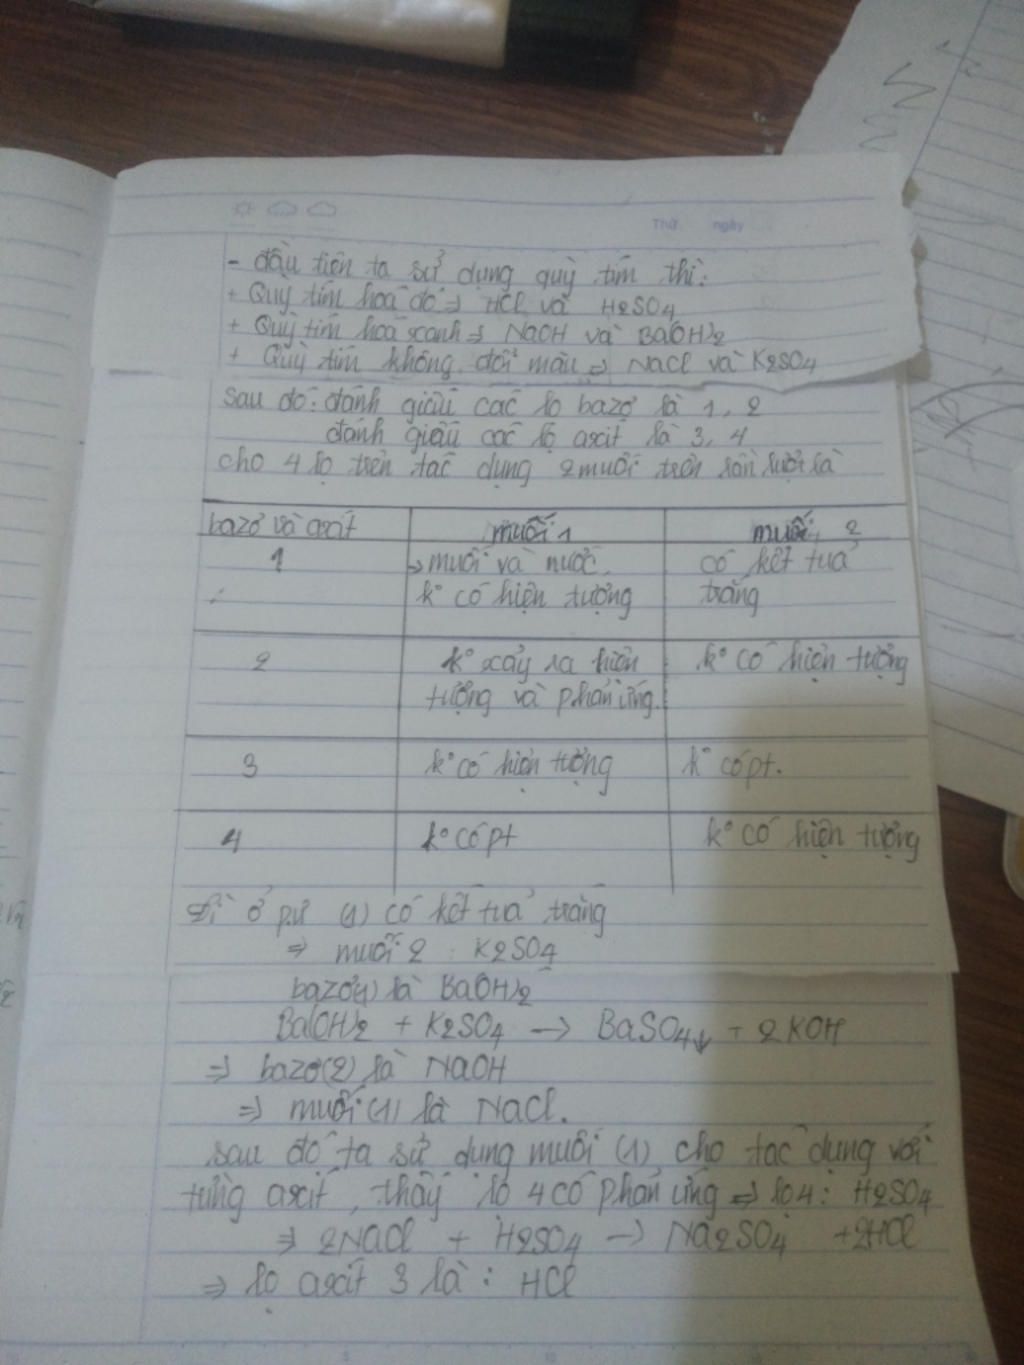 Thứ ngày
- đầu tiên ta sử dụng quỳ tím thì:
+ Quỳ tím hoá đỏ => HCl và H2SO4
+ Quỳ tím hoá xanh => NaOH và Ba(OH)2
+ Quỳ tím không đổi màu => NaCl và K2SO4
sau đó: đánh giấu các lọ bazơ là 1, 2
đánh giấu các lọ axit là 3, 4
cho 4 lọ trên tác dụng 2 muối trên lần lượt là
bazơ và axit muối 1 muối 2
1 -> muối và nước. có kết tủa
k° có hiện tượng trắng
2 k° xảy ra hiện k° có hiện tượng
tượng và phản ứng.
3 k° có hiện tượng k° có pt.
4 k° có pt k° có hiện tượng
Vì ở pư (1) có kết tủa trắng
=> muối 2 : K2SO4
bazơ(1) là Ba(OH)2
Ba(OH)2 + K2SO4 -> BaSO4↓ + 2KOH
=> bazơ(2) là NaOH
=> muối (1) là NaCl.
sau đó ta sử dụng muối (1) cho tác dụng với
từng axit, thấy lọ 4 có phản ứng => lọ 4: H2SO4
=> 2NaCl + H2SO4 -> Na2SO4 + 2HCl
=> lọ axit 3 là : HCl